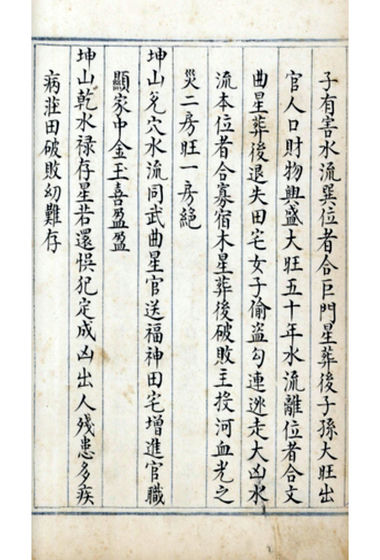 子有害水流巽位者合巨門星葬後子孫大旺出
官人口財物興盛大旺五十年水流離位者合文
曲星葬後退失田宅女子偷盗勾連迯走大凶水
流本位者合寡宿木星葬後破敗主投河血光之
災二房旺一房絕
坤山兌穴水流同武曲星官送福神田宅增進官職
顯家中金玉喜盈盈
坤山乾水禄存星若還悞犯定成凶出人殘患多疾
病莊田破敗幼難存